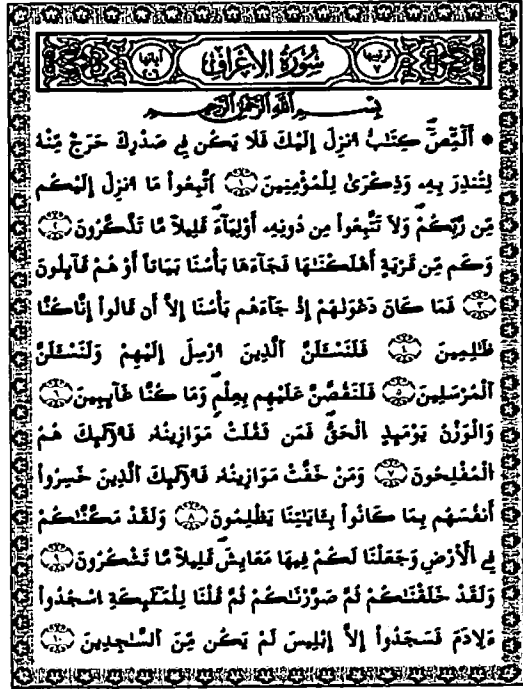 ترتيبها ٧ سُورَةُ الأَعْرَافِ آياتها ٢٠٦
بِسْمِ اللَّهِ الرَّحْمَٰنِ الرَّحِيمِ
* أَلَٓمِّٓصَٓ كِتَٰبٌ ا۟نزِلَ إِلَيْكَ فَلَا يَكُن فِي صَدْرِكَ حَرَجٌ مِّنْهُ
لِتُنذِرَ بِهِۦ وَذِكْرَىٰ لِلْمُومِنِينَ ١ اَتَّبِعُوا۟ مَا ا۟نزِلَ إِلَيْكُم
مِّن رَّبِّكُمْ وَلَا تَتَّبِعُوا۟ مِن دُونِهِۦٓ أَوْلِيَآءَ قَلِيلاً مَّا تَذَّكَّرُونَ ٢
وَكَم مِّن قَرْيَةٍ أَهْلَكْنَٰهَا فَجَآءَهَا بَأْسُنَا بَيَٰتاً أَوْ هُمْ قَآيِلُونَ
٣ فَمَا كَانَ دَعْوَىٰهُمْ إِذْ جَآءَهُم بَأْسُنَا إِلَّآ أَن قَالُوا۟ إِنَّا كُنَّا
ظَٰلِمِينَ ٤ فَلَنَسْـَٔلَنَّ اَلذِينَ ا۟رْسِلَ إِلَيْهِمْ وَلَنَسْـَٔلَنَّ
اَلْمُرْسَلِينَ ٥ فَلَنَقُصَّنَّ عَلَيْهِم بِعِلْمٍ وَمَا كُنَّا غَآيِبِينَ ٦
وَالْوَزْنُ يَوْمَيِذٍ اِلْحَقُّ فَمَن ثَقُلَتْ مَوَٰزِينُهُۥ فَا۟وْلَٰٓيِكَ هُمُ
اُلْمُفْلِحُونَ ٧ وَمَنْ خَفَّتْ مَوَٰزِينُهُۥ فَا۟وْلَٰٓيِكَ اَلذِينَ خَسِرُوٓا۟
أَنفُسَهُم بِمَا كَانُوا۟ بِـَٔايَٰتِنَا يَظْلِمُونَ ٨ وَلَقَدْ مَكَّنَّٰكُمْ
فِي اِلْأَرْضِ وَجَعَلْنَا لَكُمْ فِيهَا مَعَٰيِشَ قَلِيلاً مَّا تَشْكُرُونَ ٩
وَلَقَدْ خَلَقْنَٰكُمْ ثُمَّ صَوَّرْنَٰكُمْ ثُمَّ قُلْنَا لِلْمَلَٰٓيِكَةِ اِسْجُدُوا۟
ءَلِادَمَ فَسَجَدُوٓا۟ إِلَّآ إِبْلِيسَ لَمْ يَكُن مِّنَ اَلسَّٰجِدِينَ ١٠